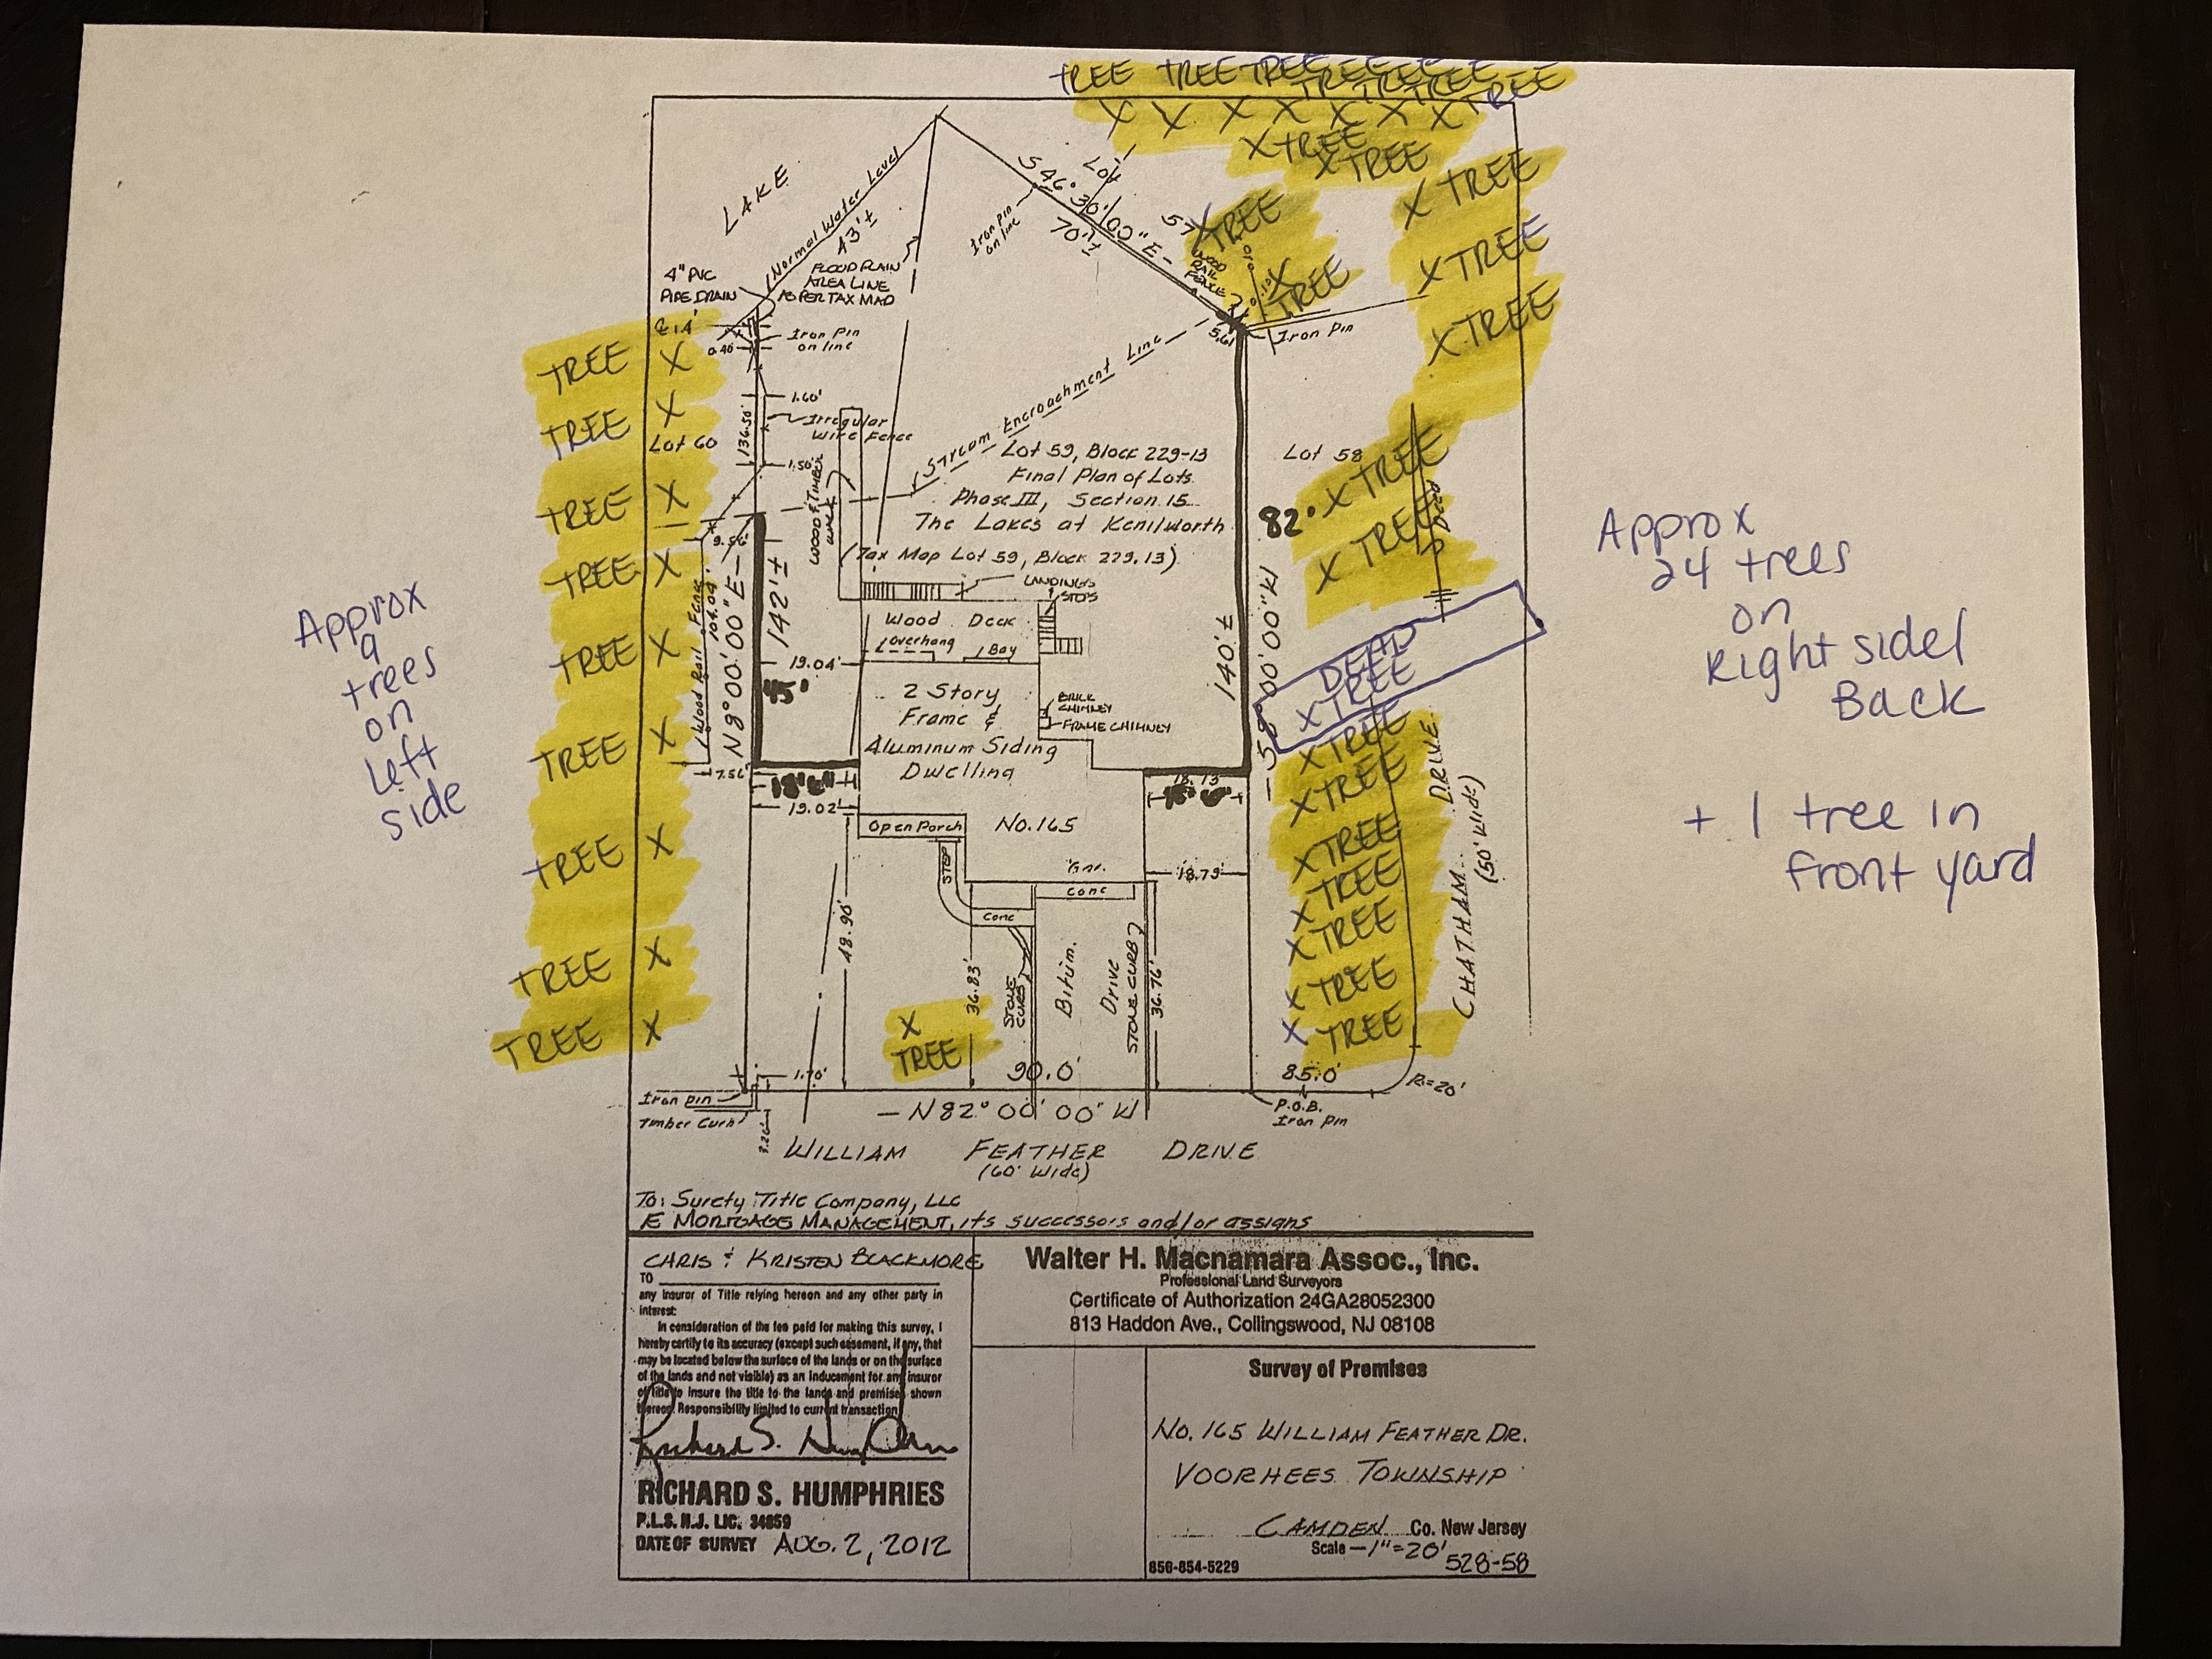 TREE TREE TREE TREE TREE TREE
TREE TREE TREE
X X X X X X X TREE
X TREE
X TREE
X TREE
LAKE
Normal Water Level
43'±
S 46° 30' 00" E -
70'±
Lot
57
Iron Pin
on line
X
TREE
WOOD
RAIL
FENCE
X
TREE
X TREE
X TREE
4" PVC
PIPE DRAIN
FLOOD PLAIN
AREA LINE
AS PER TAX MAP
Iron Pin
on line
0.40
5.61
Iron Pin
TREE X
TREE X
Lot 60
TREE X
TREE X
TREE X
TREE X
TREE X
TREE X
TREE X
136.50'
1.60'
Irregular
Wire Fence
1.50'
WOOD & TIMBER
WALK
Stream Encroachment Line
Lot 59, Block 229-13
Final Plan of Lots
Phase III, Section 15
The Lakes at Kenilworth
(Tax Map Lot 59, Block 229.13)
Lot 58
X TREE
X TREE
Deed
82'
9.56'
Wood Rail Fence
104.09'
N 8° 00' 00" E -
142'±
19.04'
45'
LANDINGS
STEPS
Wood Deck
Overhang
Bay
2 Story
Frame &
Aluminum Siding
Dwelling
BRICK
CHIMNEY
FRAME CHIMNEY
140'±
00' 00" W
DEAD
X TREE
X TREE
X TREE
X TREE
X TREE
X TREE
X TREE
X TREE
CHATHAM DRIVE
(50' Wide)
7.56'
19.02'
18.13
Open Porch
No. 165
STEP
Gar.
Conc
Conc
18.79'
48.90'
36.83'
STONE
CURB
Bitum.
Drive
STONE CURB
36.76'
X
TREE
1.70'
90.0'
85.0'
R=20'
Iron pin
Timber Curb
3.26'
- N 82° 00' 00" W
P.O.B.
Iron Pin
WILLIAM FEATHER DRIVE
(60' Wide)
Approx
9
trees
on
Left
side
Approx
24 trees
on
Right side/
Back
+ 1 tree in
front yard
To: Surety Title Company, LLC
E MORTGAGE MANAGEMENT, its successors and/or assigns
CHRIS & KRISTEN BLACKMORE
TO
any insuror of Title relying hereon and any other party in
interest:
In consideration of the fee paid for making this survey, I
hereby certify to its accuracy (except such easement, if any, that
may be located below the surface of the lands or on the surface
of the lands and not visible) as an inducement for any insuror
of title to insure the title to the lands and premises shown
thereon. Responsibility limited to current transaction
RICHARD S. HUMPHRIES
P.L.S. N.J. LIC. 34859
DATE OF SURVEY AUG. 2, 2012
Walter H. Macnamara Assoc., Inc.
Professional Land Surveyors
Certificate of Authorization 24GA28052300
813 Haddon Ave., Collingswood, NJ 08108
Survey of Premises
No. 165 WILLIAM FEATHER DR.
VOORHEES TOWNSHIP
CAMDEN Co. New Jersey
Scale - 1"=20'
856-854-5229
528-58